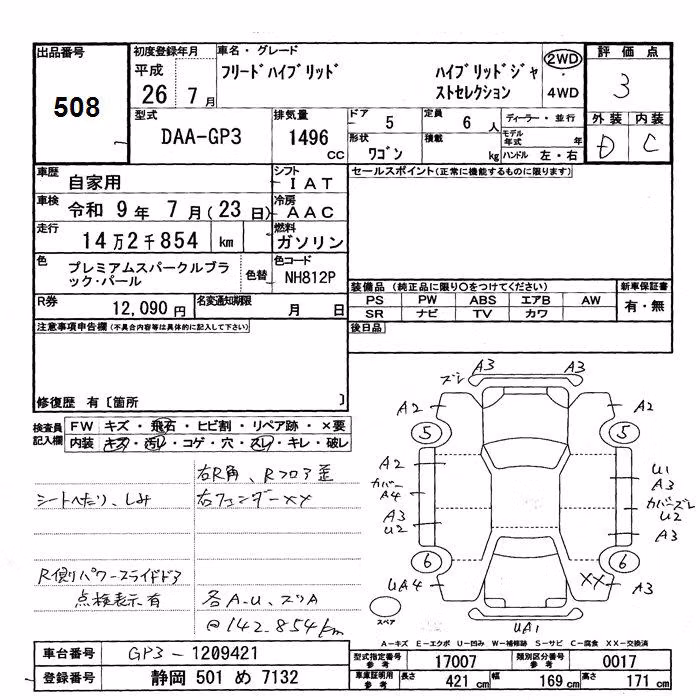 出品番号
508
初度登録年月
平成
26 7月
車名・グレード
フリードハイブリッド ハイブリッドジャ
ストセレクション
2WD
4WD
評価点
3
外装 内装
D C
型式
DAA-GP3
排気量
1496
cc
ドア 5
定員 6 人
形状 ワゴン
積載 kg
ディーラー・並行
モデル年式 年
ハンドル 左・右
車歴
自家用
シフト
IAT
車検
令和 9年 7月(23日)
冷房
AAC
走行
14万2千854 km
燃料
ガソリン
色
プレミアムスパークルブラ
ック・パール
色替
色コード
NH812P
R券
12,090円
名変通知期限
月 日
セールスポイント(正常に機能するものに限ります)
装備品 (純正品に限り○をつけてください)
PS PW ABS エアB AW
SR ナビ TV カワ
新車保証書
有・無
後日品
注意事項申告欄(不具合内容等は具体的に記入して下さい)
修復歴 有〔箇所 〕
検査員
記入欄
FW キズ・飛石・ヒビ割・リペア跡・×要
内装 キズ・汚レ・コゲ・穴・スレ・キレ・破レ
右R角、Rフロア歪
シートへたり、しみ
右フェンダーXX
R側パワースライドドア
点検表示有
各A・U、スリA
@142.854km
A3 A3
ズレ
A2 A2
5 5
A2
カバー
A4
A3
U2
U1
A3
カバーズレ
U2
A3
6 6
UA4
XX
A3
スペア
UA1
A-キズ E-エクボ U-凹み W-補修跡 S-サビ C-腐食 XX-交換済
車台番号
GP3-1209421
登録番号
静岡 501 め 7132
型式指定番号
参考
17007
類別区分番号
参考
0017
車庫証明用
参考
長さ 421cm
幅 169cm
高さ 171cm